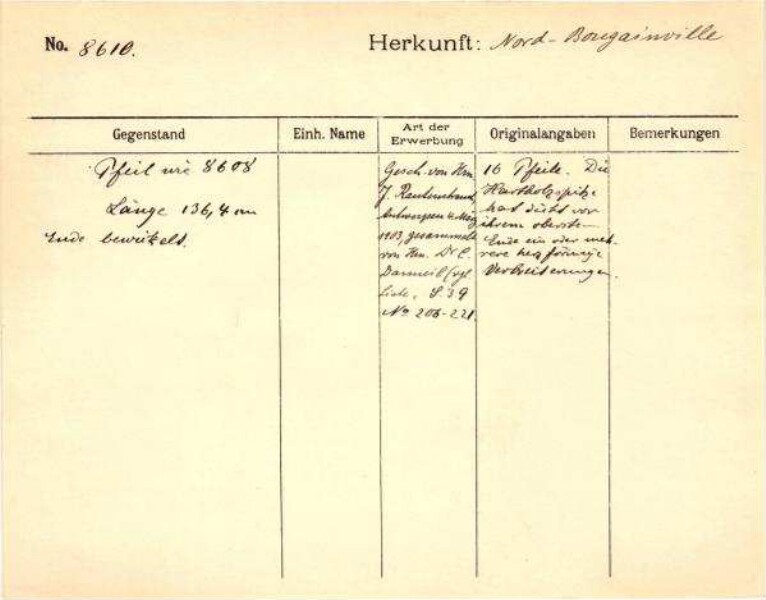 No. 8610.
Herkunft: Nord-Bougainville
Gegenstand
Einh. Name
Art der Erwerbung
Originalangaben
Bemerkungen
Pfeil wie 8608
Länge 136,4 cm
Ende bewickelt.
Gesch. von Hrn.
J. Rautenstrauch,
Antwerpen
1903, gesammelt
von Hrn. Dr C.
Danneil (vgl.
Liste, S. 39
No 206-221.
16 Pfeile. Die
Hartholzspitze
hat dicht vor
ihrem obersten
Ende ein oder meh-
rere
Verbreiterungen.